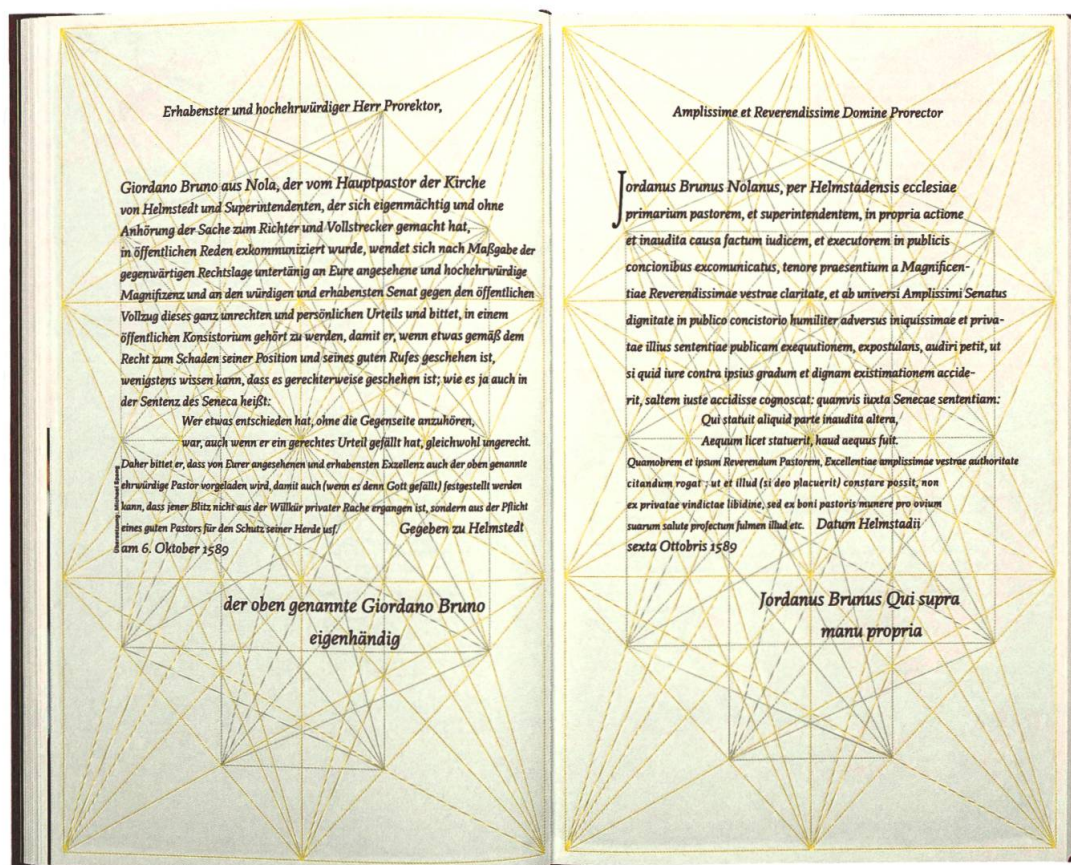 Erhabenster und hochehrwürdiger Herr Prorektor,
Giordano Bruno aus Nola, der vom Hauptpastor der Kirche
von Helmstedt und Superintendenten, der sich eigenmächtig und ohne
Anhörung der Sache zum Richter und Vollstrecker gemacht hat,
in öffentlichen Reden exkommuniziert wurde, wendet sich nach Maßgabe der
gegenwärtigen Rechtslage untertänig an Eure angesehene und hochehrwürdige
Magnifizenz und an den würdigen und erhabensten Senat gegen den öffentlichen
Vollzug dieses ganz unrechten und persönlichen Urteils und bittet, in einem
öffentlichen Konsistorium gehört zu werden, damit er, wenn etwas gemäß dem
Recht zum Schaden seiner Position und seines guten Rufes geschehen ist,
wenigstens wissen kann, dass es gerechterweise geschehen ist; wie es ja auch in
der Sentenz des Seneca heißt:
Wer etwas entschieden hat, ohne die Gegenseite anzuhören,
war, auch wenn er ein gerechtes Urteil gefällt hat, gleichwohl ungerecht.
Daher bittet er, dass von Eurer angesehenen und erhabensten Exzellenz auch der oben genannte
ehrwürdige Pastor vorgeladen wird, damit auch (wenn es denn Gott gefällt) festgestellt werden
kann, dass jener Blitz nicht aus der Willkür privater Rache ergangen ist, sondern aus der Pflicht
eines guten Pastors für den Schutz seiner Herde usf. Gegeben zu Helmstedt
am 6. Oktober 1589
der oben genannte Giordano Bruno
eigenhändig
Übersetzung: Michael
Amplissime et Reverendissime Domine Prorector
Jordanus Brunus Nolanus, per Helmstadensis ecclesiae
primarium pastorem, et superintendentem, in propria actione
et inaudita causa factum iudicem, et executorem in publicis
concionibus excomunicatus, tenore praesentium a Magnificen-
tiae Reverendissimae vestrae claritate, et ab universi Amplissimi Senatus
dignitate in publico concistorio humiliter adversus iniquissimae et priva-
tae illius sententiae publicam exequutionem, expostulans, audiri petit, ut
si quid iure contra ipsius gradum et dignam existimationem accide-
rit, saltem iuste accidisse cognoscat: quamvis iuxta Senecae sententiam:
Qui statuit aliquid parte inaudita altera,
Aequum licet statuerit, haud aequus fuit.
Quamobrem et ipsum Reverendum Pastorem, Excellentiae amplissimae vestrae authoritate
citandum rogat ; ut et illud (si deo placuerit) constare possit, non
ex privatae vindictae libidine, sed ex boni pastoris munere pro ovium
suarum salute profectum fulmen illud etc. Datum Helmstadii
sexta Ottobris 1589
Jordanus Brunus Qui supra
manu propria